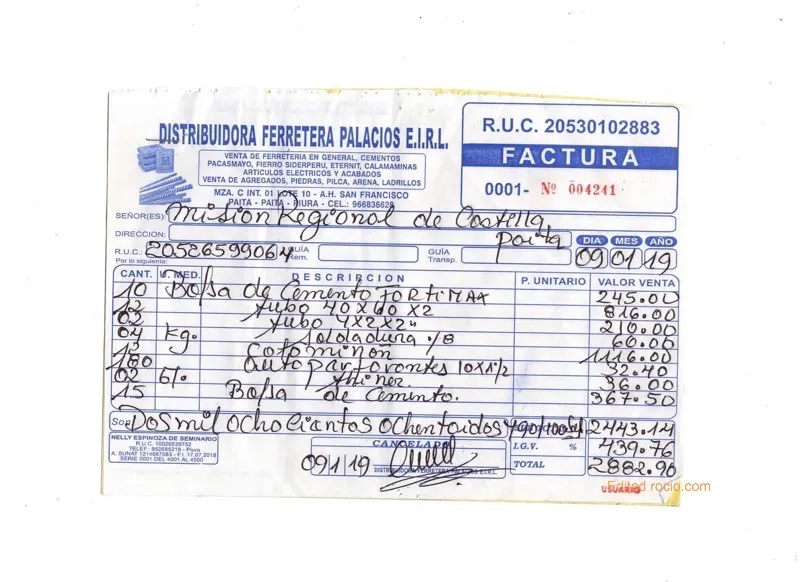 DISTRIBUIDORA FERRETERA PALACIOS E.I.R.L.
VENTA DE FERRETERIA EN GENERAL, CEMENTOS
PACASMAYO, FIERRO SIDERPERU, ETERNIT, CALAMAMINAS
ARTICULOS ELECTRICOS Y ACABADOS
VENTA DE AGREGADOS, PIEDRAS, PILCA, ARENA, LADRILLOS
MZA. C INT. 01 LOTE 10 - A.H. SAN FRANCISCO
PAITA - PAITA - PIURA - CEL.: 966836628
R.U.C. 20530102883
FACTURA
0001- Nº 004241
SEÑOR(ES): Mision Regional de Castilla
DIRECCION: paita
DIA MES AÑO
R.U.C.: 20526599064 GUÍA Rem. GUÍA Transp. 09 01 19
Por lo siguiente:
CANT. U. MED. DESCRIPCION P. UNITARIO VALOR VENTA
10 Bolsa de Cemento FORTIMAX 245.00
12 tubo 40x60x2 816.00
02 tubo 4x2x2" 210.00
04 kg. Soldadura 1/8 60.00
1116.00
180 10x1 1/2 32.40
02 thiner 36.00
15 Bolsa de Cemento. 367.50
Son Dosmil ochocientos ochentaidos y 90/100 2443.14
CANCELADO
I.G.V. % 439.76
TOTAL 2882.90
09/1/19
DISTRIBUIDORA FERRETERA PALACIOS E.I.R.L.
NELLY ESPINOZA DE SEMINARIO
R.U.C. 10028539752
TELEF.: 952685219 - Piura
A. SUNAT 1214687083 - F.I. 17.07.2018
SERIE 0001 DEL 4001 AL 4500
USUARIO
Edited rocio.com